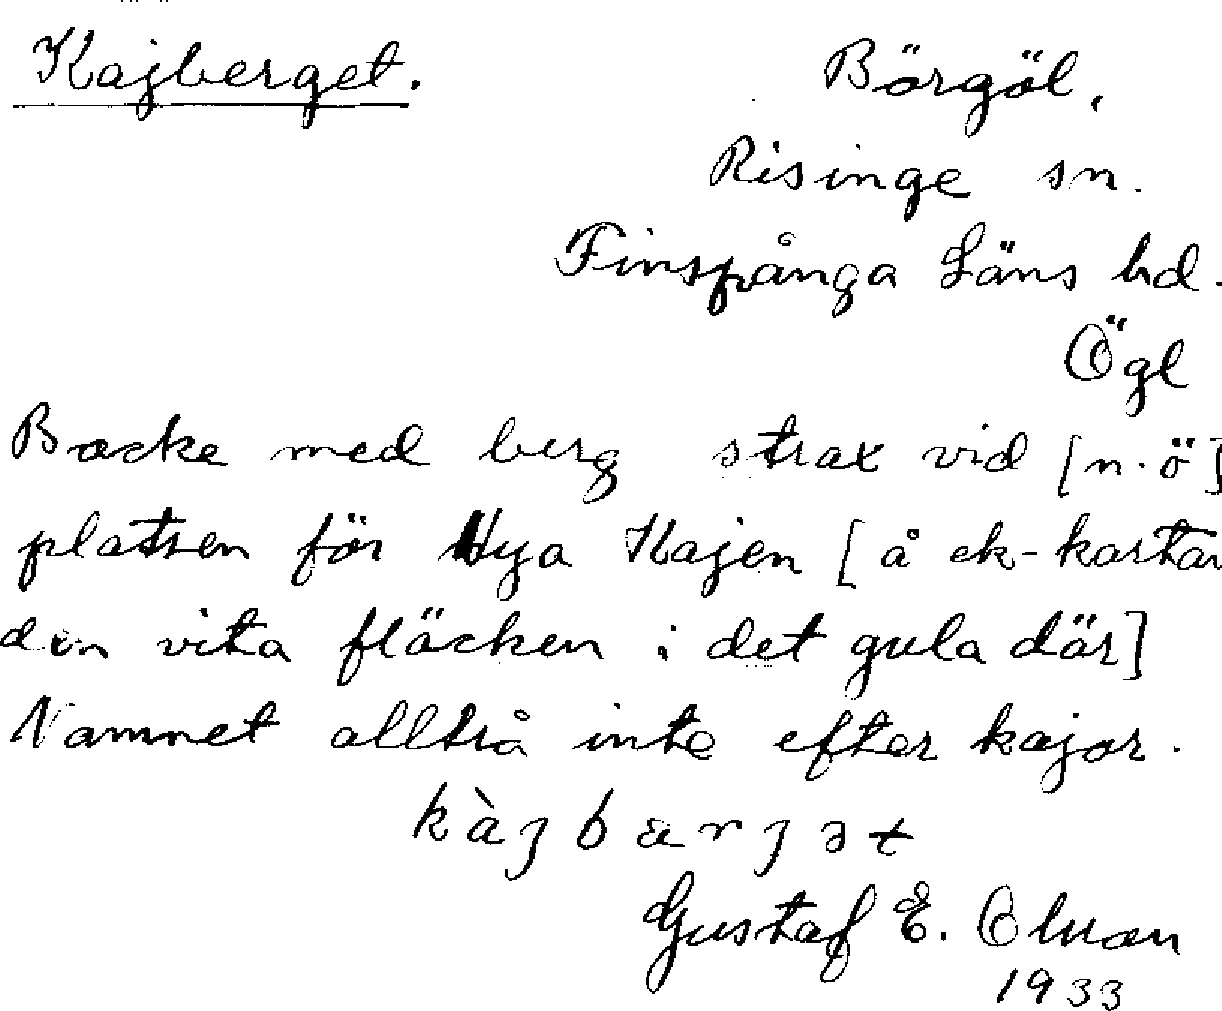 Kajberget.
Börgöl,
Risinge sn.
Finspånga Läns hd.
Ögl
Backe med berg strax vid [n.ö]
platsen för Nya Kajen [å ek-kartan
den vita fläcken i det gula där]
Namnet alltså inte efter kajor.
kàjbærjət
Gustaf E. Olsson
1933